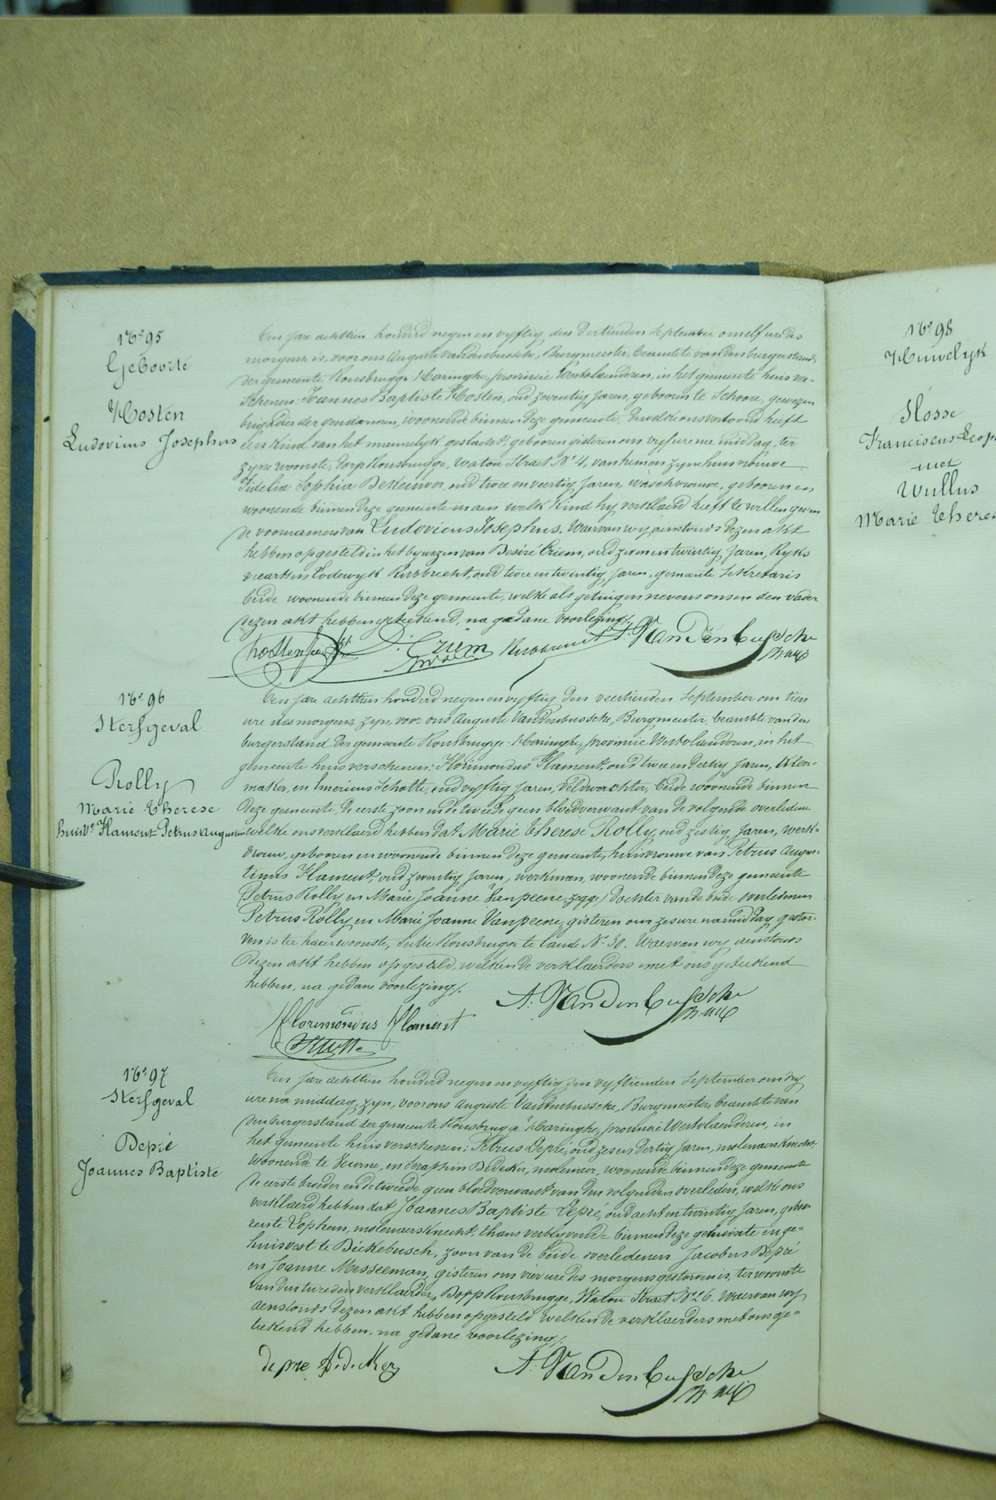 No 95
Geboorte
Hosten
Ludovicus Josephus
Een jaer achttien honderd negen en vyftig den dertienden September om elf ure des
morgens is, voor ons Auguste Vandenbussche, Burgmeester, beambte van den burgerstand
der gemeente Rousbrugge-Haringhe, provincie Westvlaenderen, in het gemeente huis ver-
schenen: Joannes Baptiste Hosten, oud zeventig jaren, geboren te Schoore, gewezen
brigadier der douanen, woonende binnen deze gemeente, dewelke ons vertoond heeft
een kind van het mannelyk geslacht, geboren gisteren om vyf ure na middag, ter
zyne wooste, dorp Rousbrugge, Watou Straet No 4, van hem en zyne huisvrouwe
Fidelia Sophia, oud twee en veertig jaren, waschvrouwe, geboren en
woonende binnen deze gemeente en aen welk kind hy verklaerd heeft te willen geven
de voornamen van Ludovicus Josephus. Waervan wy aenstonds dezen akt
hebben opgesteld in het bywezen van Desiré Criem, oud zeven en twintig jaren, Ryks
veearts en Lodewyk Rubbrecht, oud twee en twintig jaren, gemeente Sekretaris
beide woonende binnen deze gemeente, welke als getuigen nevens ons en den vader
dezen akt hebben geteekend, na gedane voorlezing.
D. Criem Rubbrecht A. Vandenbussche
No 96
Sterfgeval
Rolly
Marie Therese
huisve Flament Petrus Augustinus
Een jaer achttien honderd negen en vyftig den veertienden September om tien
ure des morgens zyn, voor ons Auguste Vandenbussche, Burgmeester, beambte van den
burgerstand der gemeente Rousbrugge-Haringhe, provincie Westvlaenderen, in het
gemeente huis verschenen: Florimondus Flament, oud twee en dertig jaren,
maker, en Amerieus Schotte, oud vyftig jaren, veldwachter, beide woonende binnen
deze gemeente, de eerste zoon en de tweede geen bloedverwant van de volgende overledene
welke ons verklaerd hebben dat Marie Therese Rolly, oud zestig jaren, werk-
vrouw, geboren en woonende binnen deze gemeente, huisvrouwe van Petrus Augus-
tinus Flament, oud zeventig jaren, werkman, woonende binnen deze gemeente
Petrus Rolly en Marie Joanne Vanpeene, zegge dochter van de beide overledenen
Petrus Rolly en Marie Joanne Vanpeene, gisteren om zes ure namiddag gestor-
ven is ter haere wooste, Rousbrugge te lande No 30. Waervan wy aenstonds
dezen akt hebben opgesteld, welken de verklaerders met ons geteekend
hebben, na gedane voorlezing.
A. Vandenbussche
Floremondus Flament
No 97
Sterfgeval
Depré
Joannes Baptiste
Een jaer achttien honderd negen en vyftig den vyftienden September om dry
ure na middag, zyn, voor ons Auguste Vandenbussche, Burgmeester, beambte van
den burgerstand der gemeente Rousbrugge-Haringhe, provincie Westvlaenderen, in
het gemeente huis verschenen: Petrus Depré, oud zes en dertig jaren, molenaersknecht
woonende te Veurne, en Seraphin Dedecker, molenaer, woonende binnen deze gemeente
de eerste broeder en de tweede geen bloedverwant van den volgenden overleden, welke ons
verklaerd hebben dat Joannes Baptiste Depré, oud acht en twintig jaren, gebo-
ren te Lophem, molenaersknecht, thans verblyvende binnen deze gemeente en ge-
huisvest te Dickebusch, zoon van de beide overledenen Jacobus Depré
en Joanne Musseeman, gisteren om vier ure des morgens gestorven is, ter wooste
van den tweeden verklaerder, Dorp Rousbrugge, Watou Straet No 26. Waervan wy
aenstonds dezen akt hebben opgesteld welken de verklaerders met ons ge-
teekend hebben, na gedane voorlezing.
depre A. Vandenbussche
No 98
Huwelyk
Hosse
Franciscus Leop
met
Wullus
Marie Theres